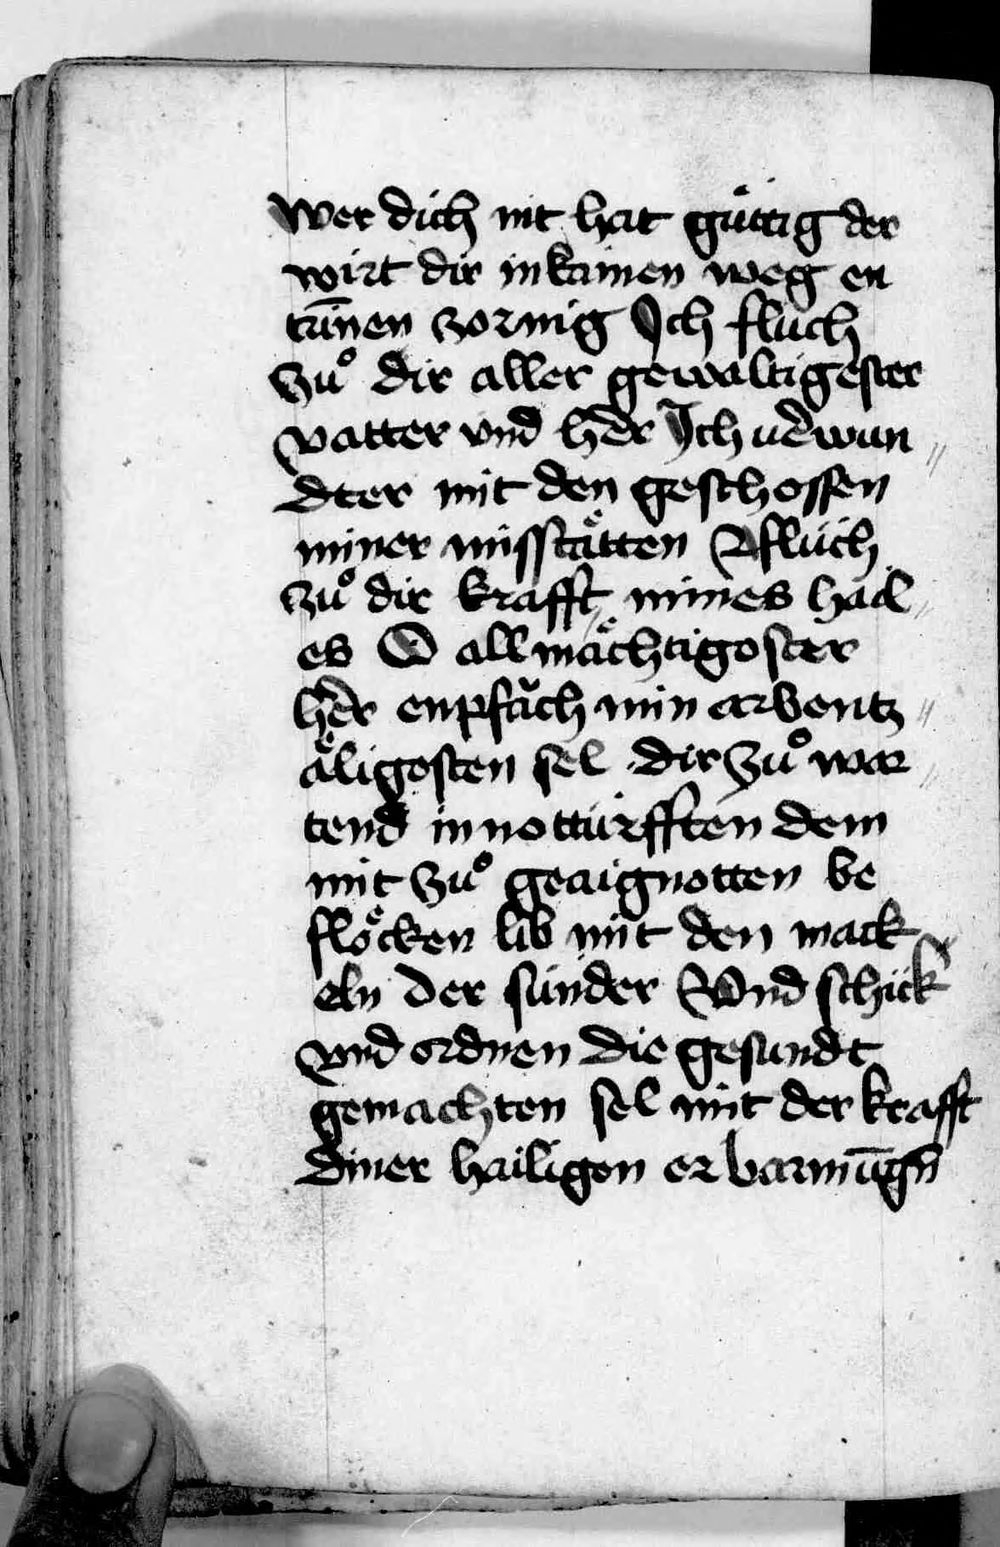 wer dich nit hat guͤttig der
wirt dir in kainen weg en
trin̄en zornig Ich fluch
zuͦ dir aller gewaltigester
vatter vnd h̄er Ich v̄erwun〃
dter mit den geschossen
miner misstaͤtten Ich fluͤch
zuͦ dir krafft mines hail〃
es O allmaͤchtigoster
h̄er enpfach min arbentz〃
aͤligosten sel dir zuͦ war〃
tend in notturfften dem
mit zuͦ geaignotten be
floͤcken lib mit den mack〃
eln der sunder Vnd schick
vnd ordnen die gesundt
gemachten sel mit der krafft
diner hailigen erbarmūgn̄